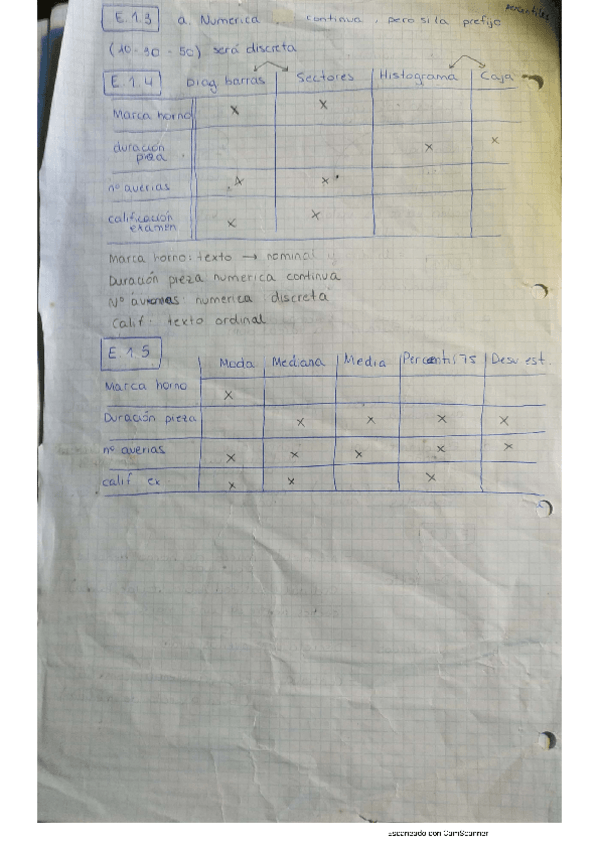 percentiles
E.1.3 a. Numerica, continua, pero si la prefijo
(10-30-50) será discreta
E.1.4 Diag barras Sectores Histograma Caja
Marca horno x x
duración pieza x x
nº averias x x
calificación examen x x
Marca horno: texto → nominal
Duración pieza numerica continua
Nº averias: numerica discreta
Calif: texto ordinal
E.1.5 Moda Mediana Media Percentil 75 Desv est.
Marca horno x
Duración pieza x x x x
nº averias x x x x x
calif ex x x x
Escaneado con CamScanner